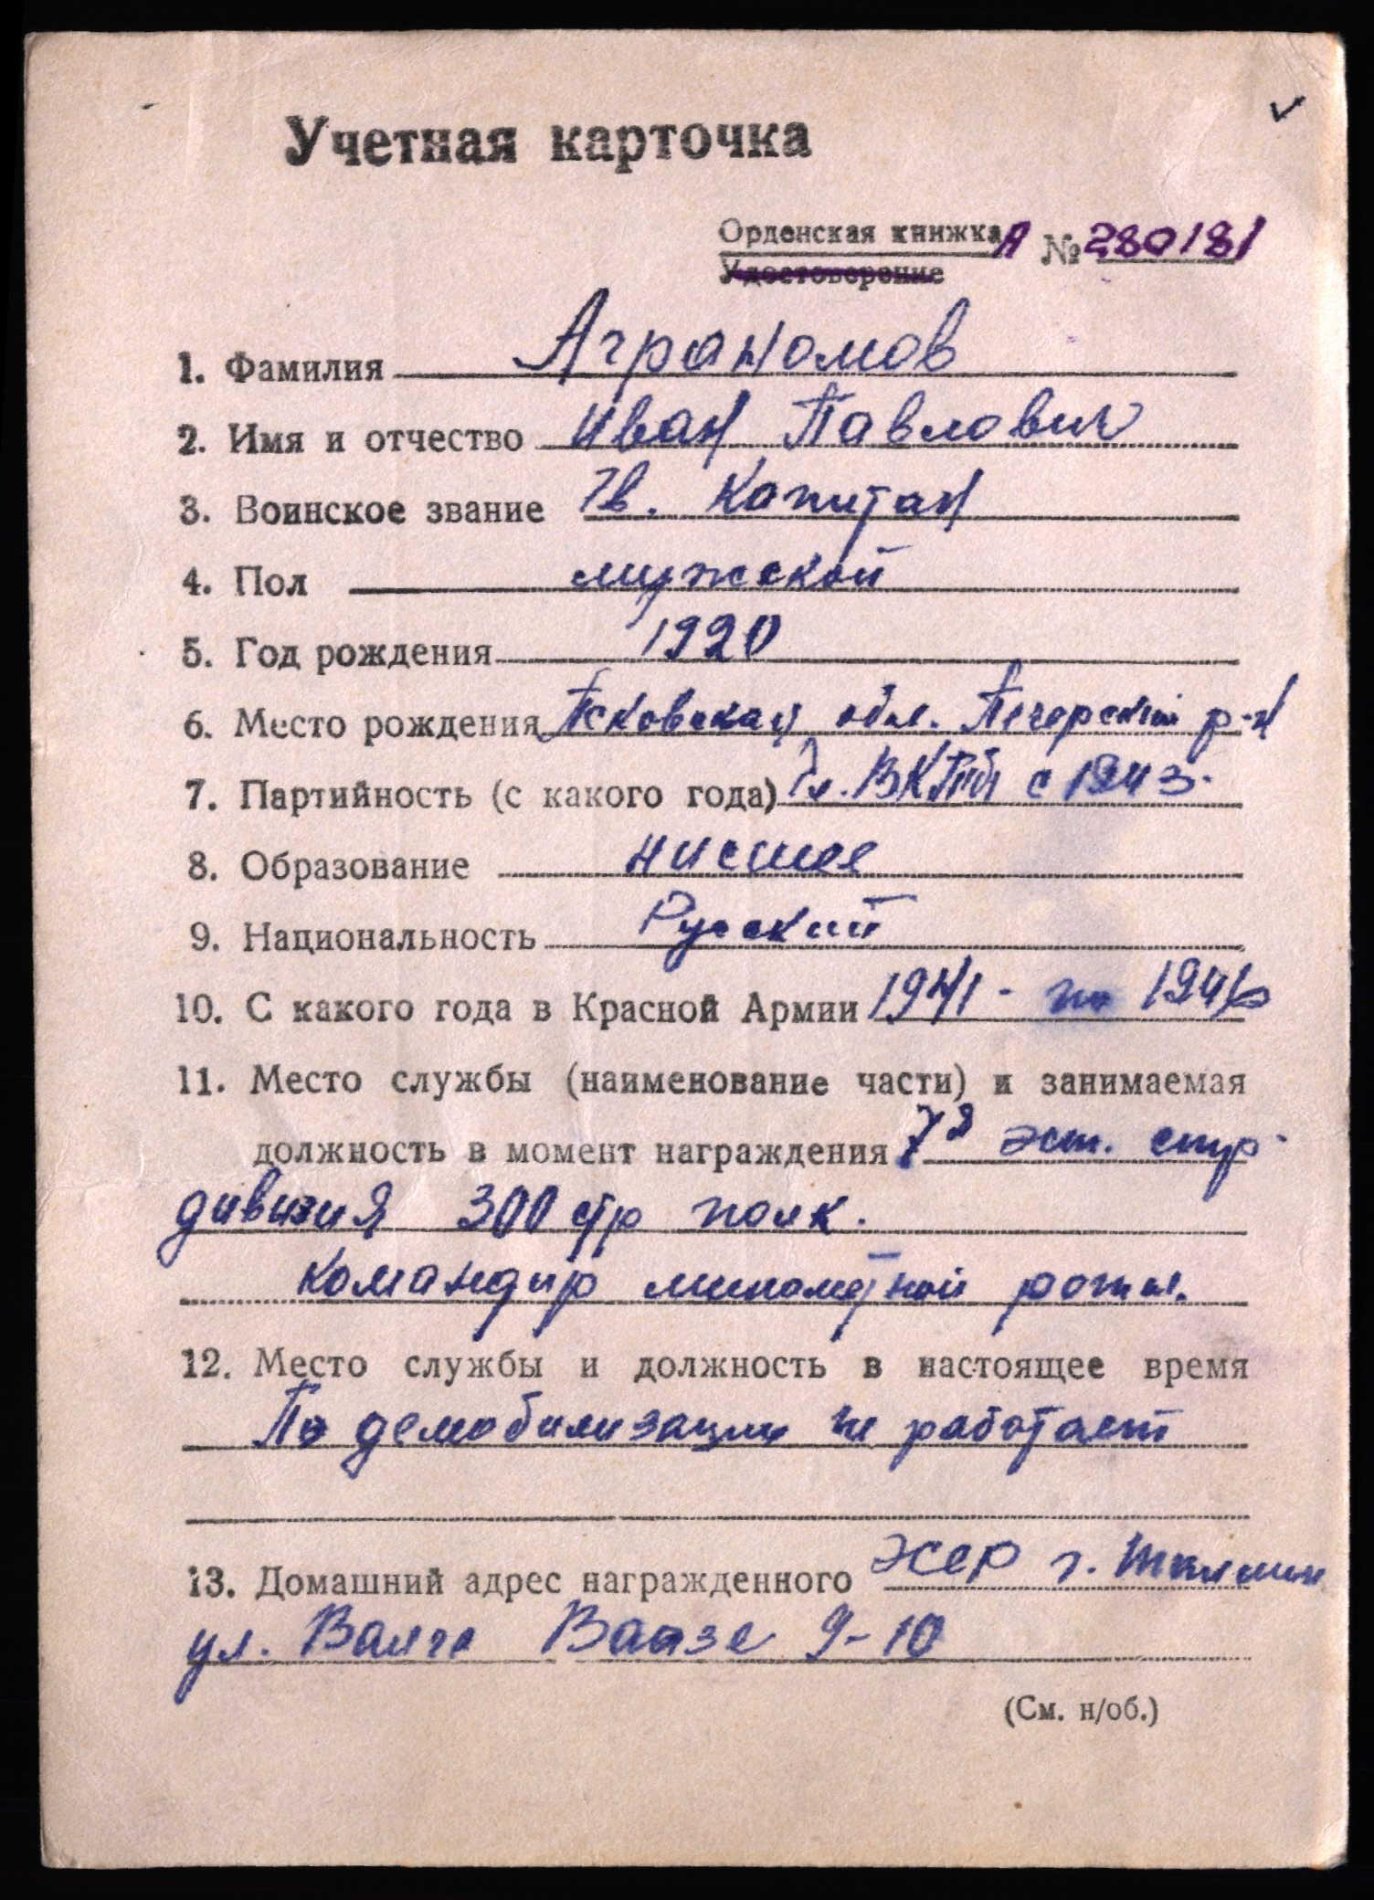 Учетная карточка
Орденская книжка А № 280181
Удостоверение
1. Фамилия Аграномов
2. Имя и отчество Иван Павлович
3. Воинское звание Гв. Капитан
4. Пол мужской
5. Год рождения 1920
6. Место рождения Псковская обл. Печорский р-н
7. Партийность (с какого года) Чл. ВКПб с 1943.
8. Образование нисшее
9. Национальность Русский
10. С какого года в Красной Армии 1941 - по 1946
11. Место службы (наименование части) и занимаемая
должность в момент награждения 7я эст. стр
дивизия 300 стр полк.
командир минометной роты.
12. Место службы и должность в настоящее время
По демобилизации не работает
13. Домашний адрес награжденного ЭССР г.
ул. 9-10
(См. н/об.)